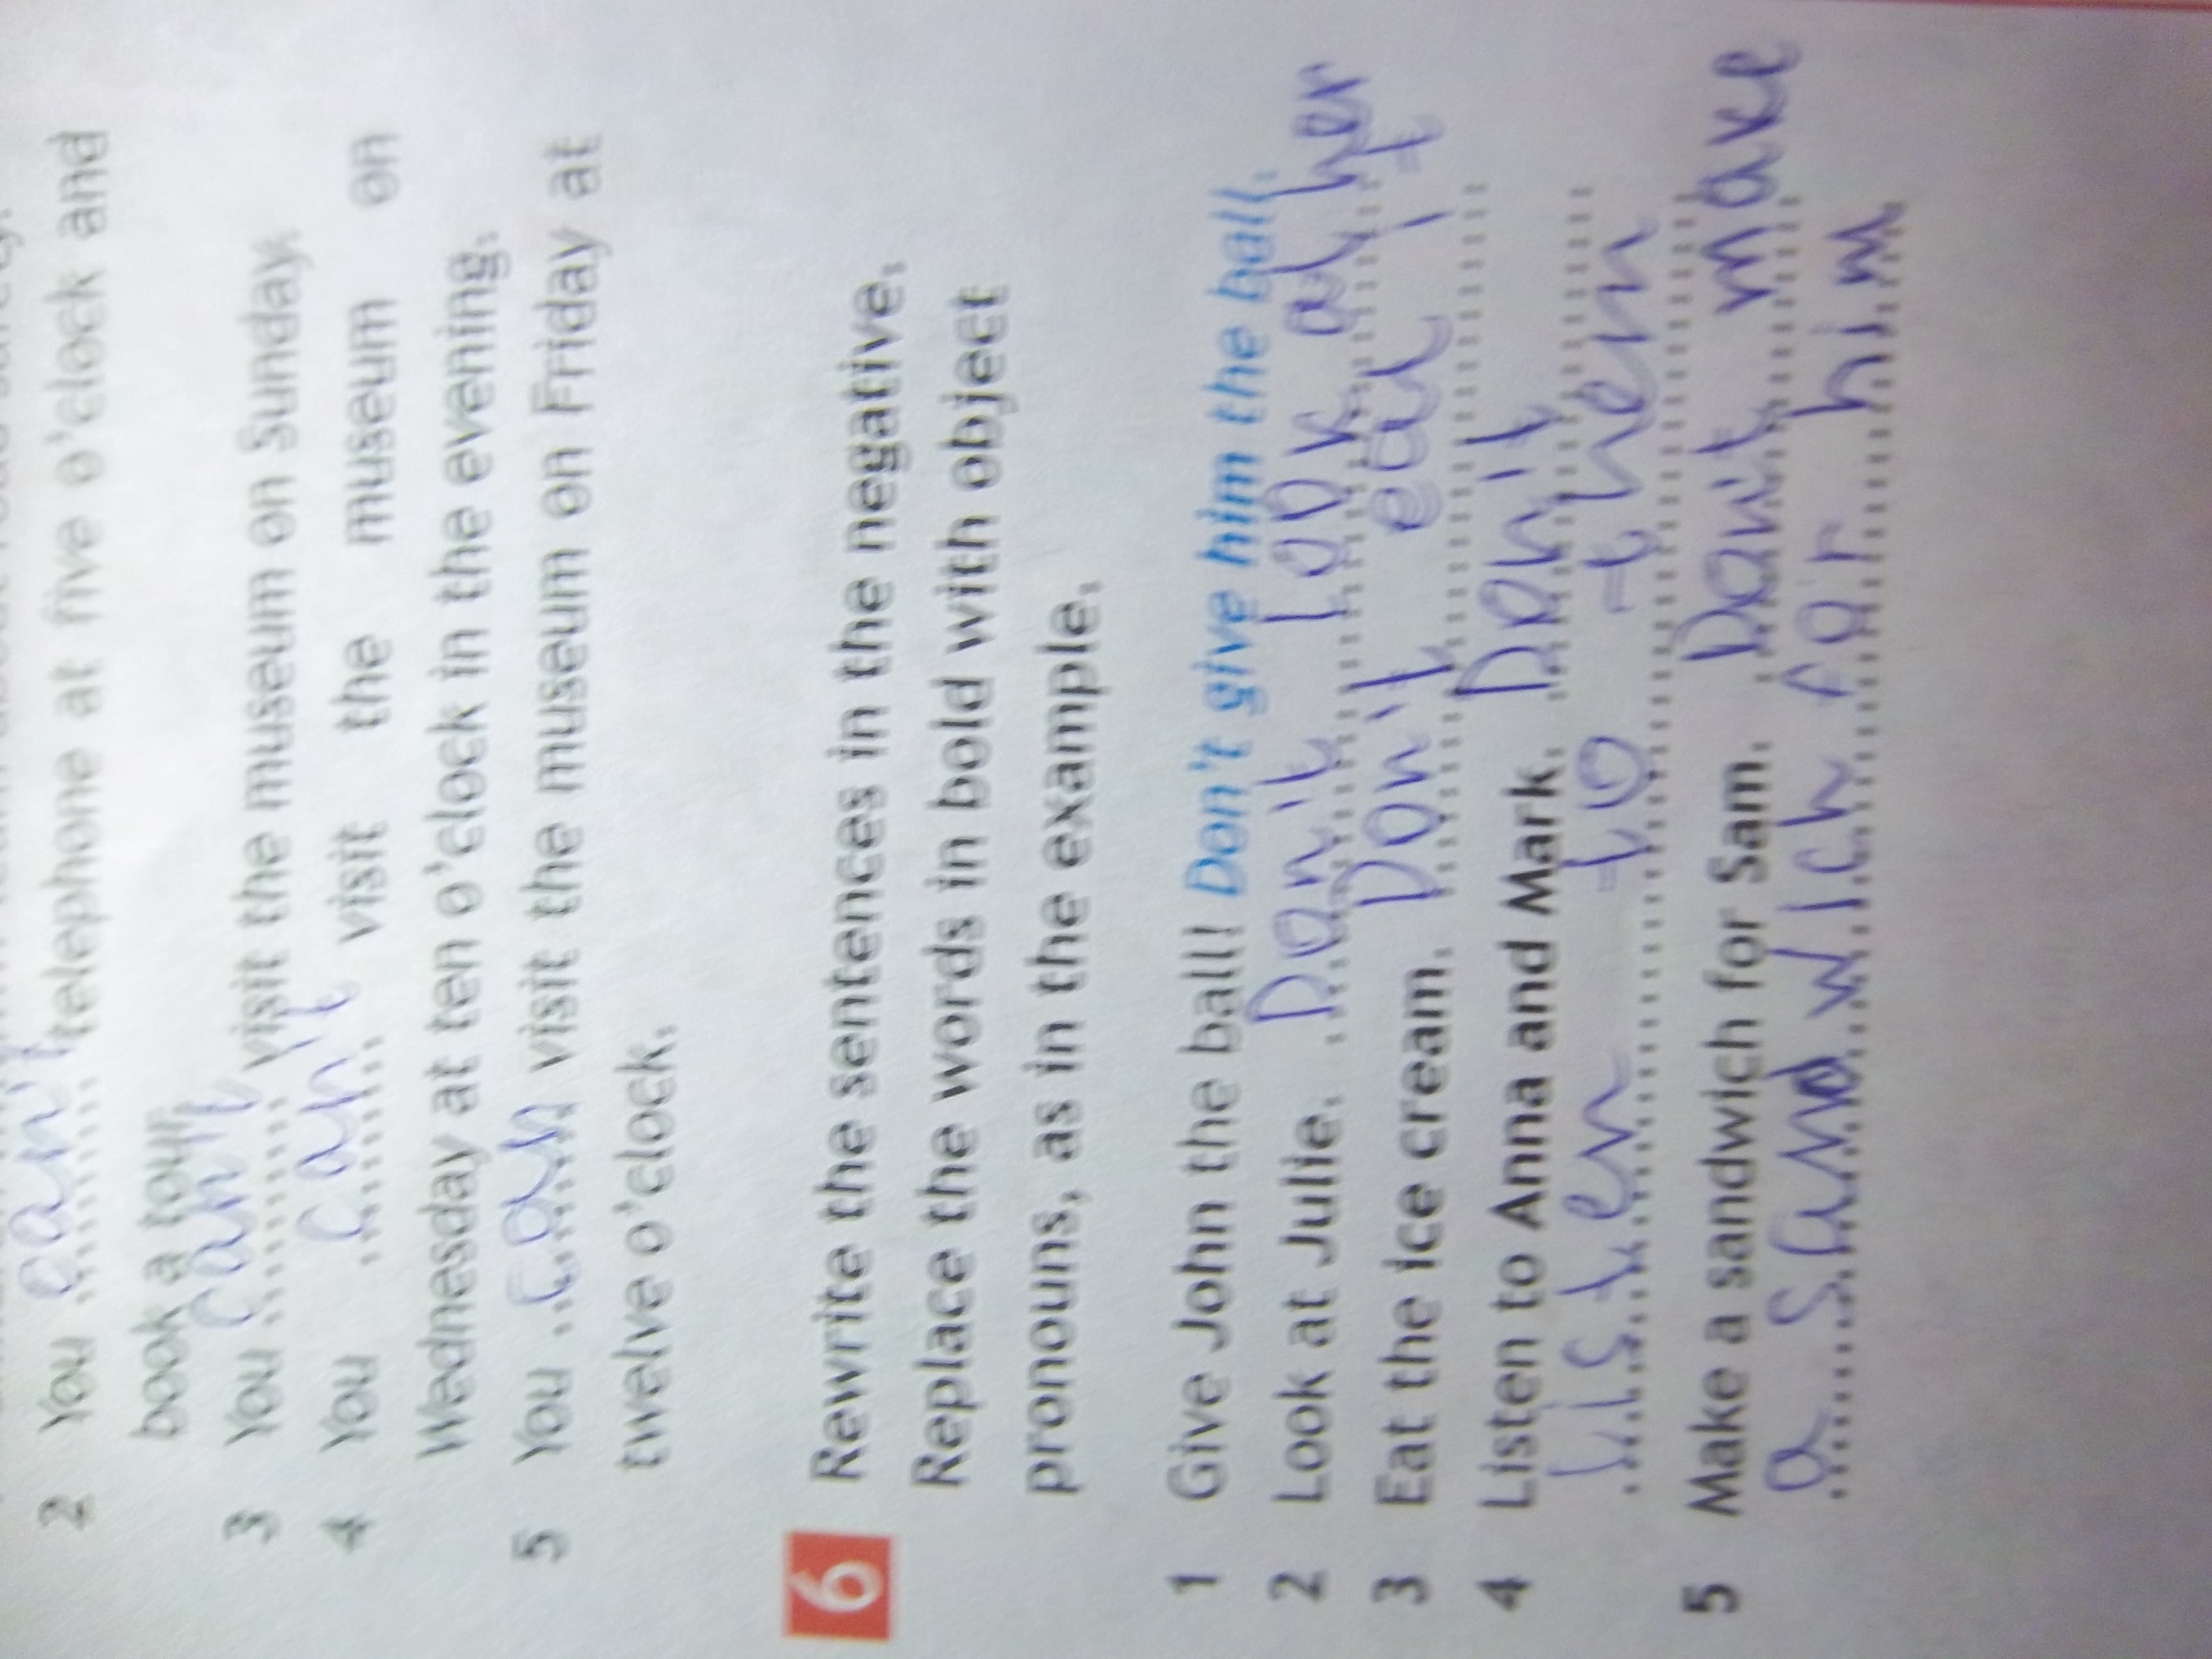 2 You can't telephone at five o'clock and
book a tour.
3 You can't visit the museum on Sunday.
4 You can't visit the museum on
Wednesday at ten o'clock in the evening.
5 You can visit the museum on Friday at
twelve o'clock.
6 Rewrite the sentences in the negative.
Replace the words in bold with object
pronouns, as in the example.
1 Give John the ball! Don't give him the ball.
2 Look at Julie. Don't look at her
3 Eat the ice cream. Don't eat it
4 Listen to Anna and Mark. Don't
listen to them
5 Make a sandwich for Sam. Don't make
a sandwich for him